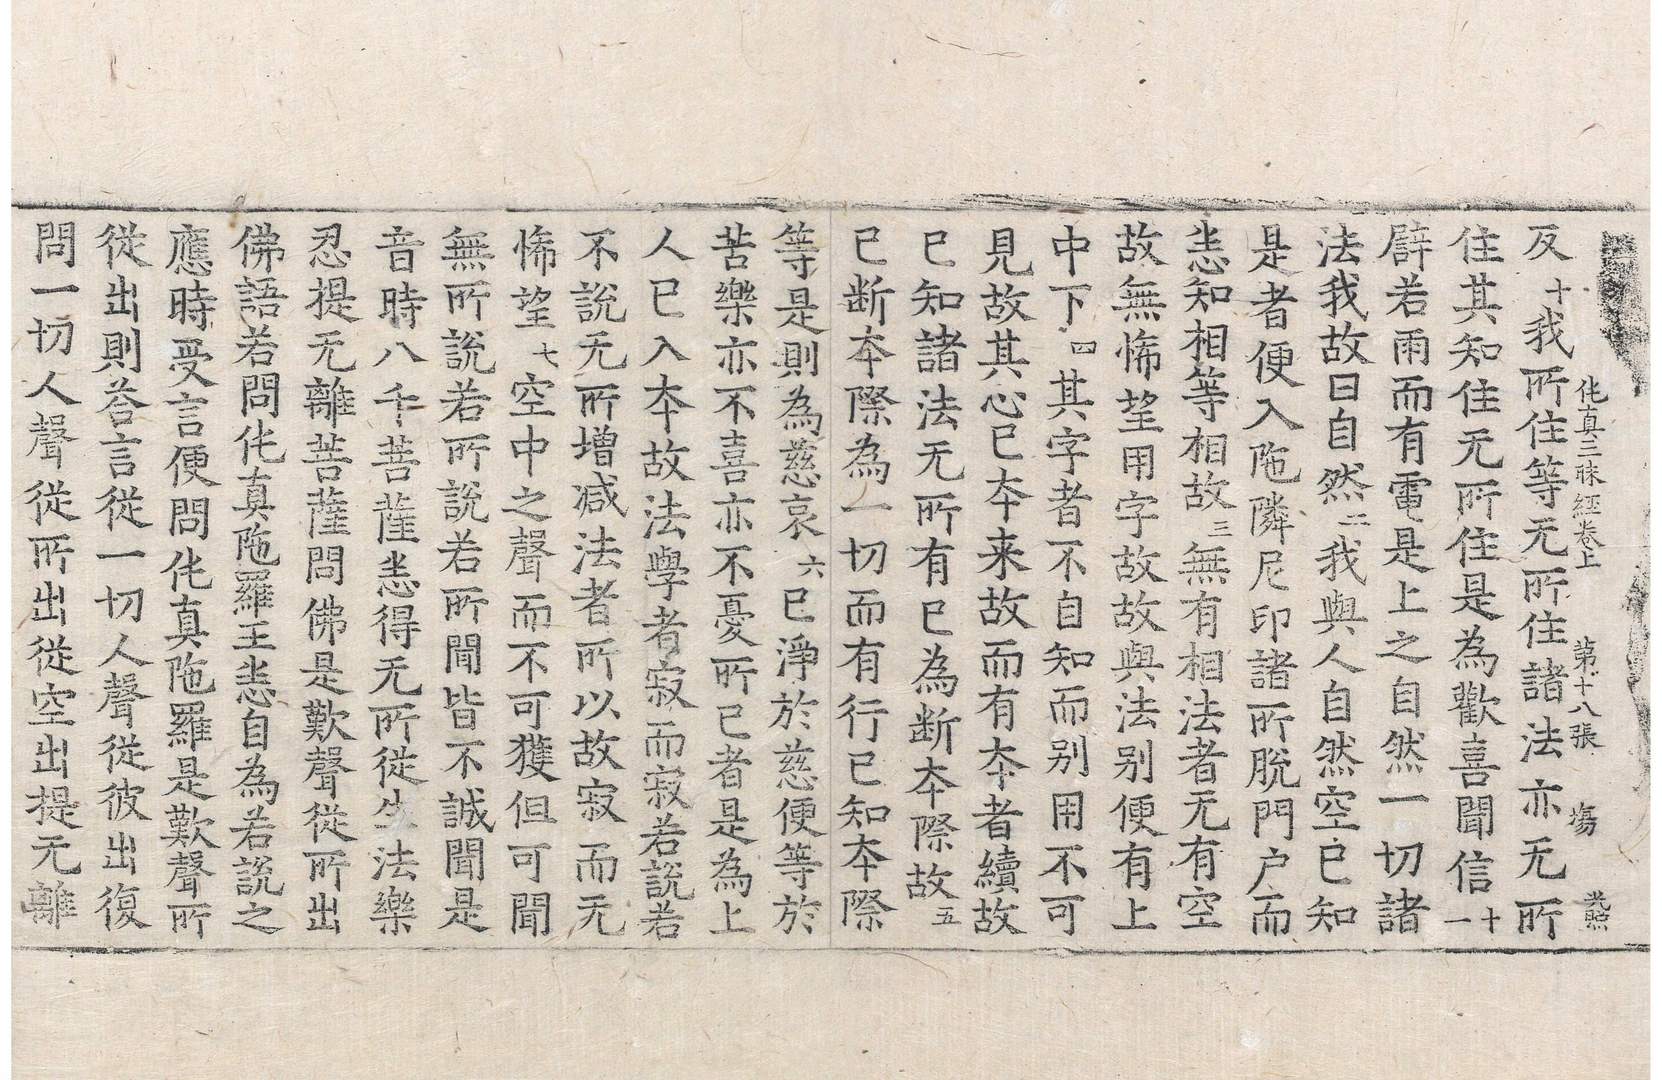 伅真三昧經卷上 第十八張 塲 光㷡
反十我所住等无所住諸法亦无所
住其知住无所住是為歡喜聞信十一
辟若雨而有雹是上之自然一切諸
法我故曰自然二我與人自然空已知
是者便入陁隣尼印諸所脫門户而
悉知相等相故三無有相法者无有空
故無悕望用字故故與法别便有上
中下四其字者不自知而别用不可
見故其心已夲来故而有夲者續故
已知諸法无所有已為断夲際故五
已断夲際為一切而有行已知夲際
等是則為慈哀六已淨於慈便等於
苦樂亦不喜亦不憂所已者是為上
人已入夲故法學者寂而寂若說若
不說无所增减法者所以故寂而无
悕望七空中之聲而不可獲但可聞
無所說若所說若所聞皆不諴聞是
音時八千菩薩悉得无所從生法樂
忍提无離菩薩問佛是歎聲從所出
佛語若問伅真陁羅王悉自為若說之
應時受言便問伅真陁羅是歎聲所
從出則荅言從一切人聲從彼出復
問一切人聲從所出從空出提无離